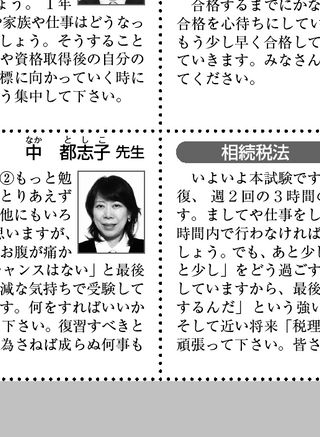 よう。１年
や家族や仕事はどうなっ
しょう。そうすること
や資格取得後の自分の
標に向かっていく時に
う集中して下さい。
合格するまでにかな
合格を心待ちにしてい
もう少し早く合格して
ていきます。みなさん
てください。
なか としこ
中 都志子 先生
②もっと勉
とりあえず
他にもいろ
思いますが、
お腹が痛か
チャンスはない」と最後
減な気持ちで受験して
す。何をすればいいか
下さい。復習すべきと
為さねば成らぬ何事も
相続税法
いよいよ本試験です
復、週２回の３時間の
す。ましてや仕事をし
時間内で行わなければ
しょう。でも、あと少し
と少し」をどう過ごす
していますから、最後
するんだ」という強い
そして近い将来「税理
頑張って下さい。皆さ